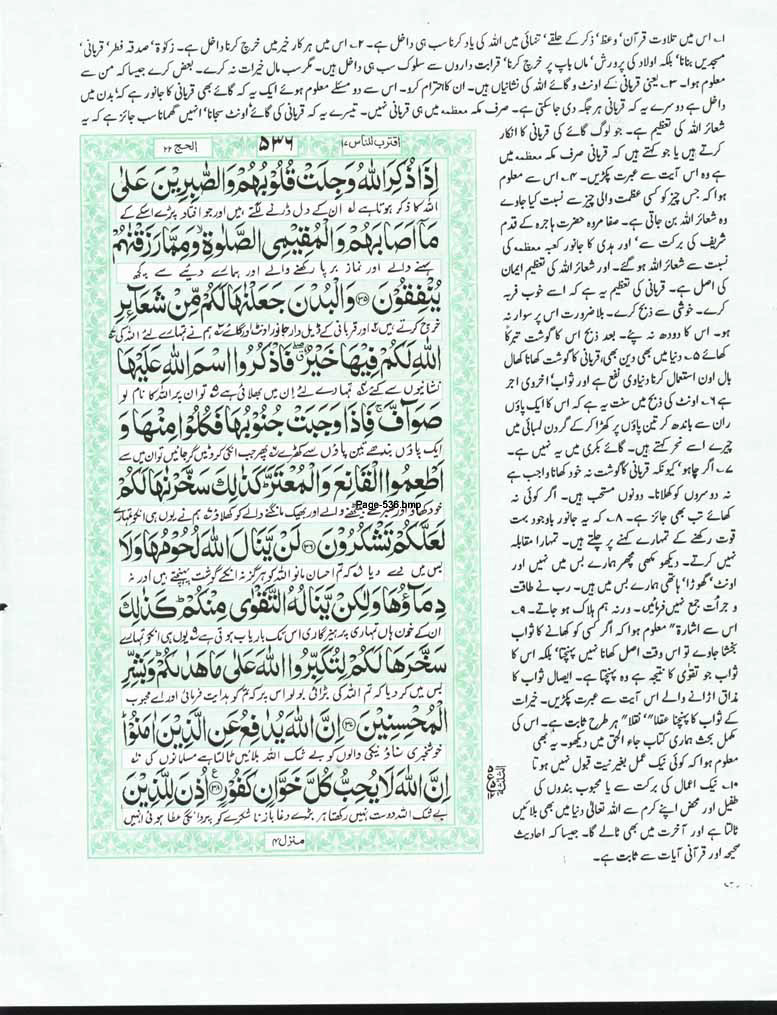 ۱۔ اس میں تلاوت قرآن' وعظ' ذکر کے حلقے' تنہائی میں اللہ کی یاد کرنا سب ہی داخل ہے۔ ۲۔ اس میں ہر کار خیر میں خرچ کرنا داخل ہے۔ زکوٰۃ' صدقہ فطر' قربانی'
مسجدیں بنانا' بلکہ اولاد کی پرورش' ماں باپ پر خرچ کرنا' قرابت داروں سے سلوک سب ہی داخل ہیں۔ مگر سب مال خیرات نہ کرے۔ بعض کرے جیسا کہ من سے
معلوم ہوا۔ ۳۔ یعنی قربانی کے اونٹ و گائے اللہ کی نشانیاں ہیں۔ ان کا احترام کرو۔ اس سے دو مسئلے معلوم ہوئے ایک یہ کہ گائے بھی قربانی کا جانور ہے کہ بدن میں
داخل ہے دوسرے یہ کہ قربانی ہر جگہ دی جا سکتی ہے۔ صرف مکہ معظمہ میں ہی قربانی نہیں۔ تیسرے یہ کہ قربانی کی گائے' اونٹ سجانا' انہیں گھمانا سب جائز ہے کہ یہ
شعائر اللہ کی تعظیم ہے۔ جو لوگ گائے کی قربانی کا انکار
کرتے ہیں یا جو کہتے ہیں کہ قربانی صرف مکہ معظمہ میں
ہے وہ اس آیت سے عبرت پکڑیں۔ ۴۔ اس سے معلوم
ہوا کہ جس چیز کو کسی عظمت والی چیز سے نسبت کیا جاوے
وہ شعائر اللہ بن جاتی ہے۔ صفا مروہ حضرت ہاجرہ کے قدم
شریف کی برکت سے' اور ہدی کا جانور کعبہ معظمہ کی
نسبت سے شعائر اللہ ہو گئے۔ اور شعائر اللہ کی تعظیم ایمان
کی اصل ہے۔ قربانی کی تعظیم یہ ہے کہ اسے خوب فربہ
کرے۔ خوشی سے ذبح کرے۔ بلا ضرورت اس پر سوار نہ
ہو۔ اس کا دودھ نہ پئے۔ بعد ذبح اس کا گوشت تبرکاً
کھائے ۵۔ دنیا میں بھی دین بھی، قربانی کا گوشت کھانا کھال
بال اون استعمال کرنا دنیاوی نفع ہے اور ثواب' اخروی اجر
ہے ۶۔ اونٹ کی ذبح میں سنت یہ ہے کہ اس کا ایک پاؤں
ران سے باندھ کر تین پاؤں پر کھڑا کر کے گردن لمبائی میں
چیرے اسے نحر کہتے ہیں۔ گائے بکری میں یہ نہیں ہے۔
۷۔ اگر چاہو' کیونکہ قربانی کا گوشت نہ خود کھانا واجب ہے
نہ دوسروں کو کھلانا۔ دونوں مستحب ہیں۔ اگر کوئی نہ
کھائے تب بھی جائز ہے۔ ۸۔ کہ یہ جانور باوجود بہت
قوت رکھنے کے تمہارے کہنے پر چلتے ہیں۔ تمہارا مقابلہ
نہیں کرتے۔ دیکھو مکھی مچھر ہمارے بس میں نہیں اور
اونٹ' گھوڑا' ہاتھی ہمارے بس میں ہیں۔ رب نے طاقت
و جرأت جمع نہیں فرمائیں۔ ورنہ ہم ہلاک ہو جاتے۔ ۹۔
اس سے اشارۃ" معلوم ہوا کہ اگر کسی کو کھانے کا ثواب
بخشا جاوے تو اس وقت اصل کھانا نہیں پہنچتا' بلکہ اس کا
ثواب جو تقویٰ کا نتیجہ ہے وہ پہنچتا ہے۔ ایصال ثواب کا
مذاق اڑانے والے اس آیت سے عبرت پکڑیں۔ خیرات
کے ثواب کا پہنچنا عقلا" نقلا" ہر طرح ثابت ہے۔ اس کی
مکمل بحث ہماری کتاب جاء الحق میں دیکھو۔ یہ بھی
معلوم ہوا کہ کوئی نیک عمل بغیر نیت قبول نہیں ہوتا
۱۰۔ نیک اعمال کی برکت سے یا محبوب بندوں کی
طفیل اور محض اپنے کرم سے اللہ تعالیٰ دنیا میں بھی بلائیں
ٹالتا ہے اور آخرت میں بھی ٹالے گا۔ جیسا کہ احادیث
صحیحہ اور قرآنی آیات سے ثابت ہے۔
اقترب للناس ۱۷
۵۳۶
الحج ۲۲
اِذَا ذُكِرَ اللّٰهُ وَجِلَتْ قُلُوْبُهُمْ وَالصّٰبِرِيْنَ عَلٰى
اللہ کا ذکر ہوتا ہے ان کے دل ڈرنے لگتے ہیں اور جو افتاد پڑے اسکے
مَاۤ اَصَابَهُمْ وَالْمُقِيْمِى الصَّلٰوةِ وَمِمَّا رَزَقْنٰهُمْ
سہنے والے اور نماز برپا رکھنے والے اور ہمارے دیئے سے کچھ
يُنْفِقُوْنَ ۳۵ وَالْبُدْنَ جَعَلْنٰهَا لَكُمْ مِّنْ شَعَآئِرِ
خرچ کرتے ہیں اور قربانی کے ڈیل دار جانور اونٹ اور گائے ہم نے تمہارے لئے اللہ کی
اللّٰهِ لَكُمْ فِيْهَا خَيْرٌ فَاذْكُرُوا اسْمَ اللّٰهِ عَلَيْهَا
نشانیوں سے کئے تمہارے لئے ان میں بھلائی ہے تو ان پر اللہ کا نام لو
صَوَآفَّ فَاِذَا وَجَبَتْ جُنُوْبُهَا فَكُلُوْا مِنْهَا وَ
ایک پاؤں بندھے تین پاؤں سے کھڑے پھر جب انکی کروٹیں گر جائیں تو ان میں سے
اَطْعِمُوا الْقَانِعَ وَالْمُعْتَرَّ كَذٰلِكَ سَخَّرْنٰهَا لَكُمْ
Page-536.bmp
خود کھاؤ اور صبر سے بیٹھنے والے اور بھیک مانگنے والے کو کھلاؤ ہم نے یوں ہی انکو تمہارے
لَعَلَّكُمْ تَشْكُرُوْنَ ۳۶ لَنْ يَّنَالَ اللّٰهَ لُحُوْمُهَا وَلَا
بس میں دے دیا کہ تم احسان مانو اللہ کو ہرگز نہ انکے گوشت پہنچتے ہیں اور نہ
دِمَآؤُهَا وَلٰكِنْ يَّنَالُهُ التَّقْوٰى مِنْكُمْ كَذٰلِكَ
ان کے خون ہاں تمہاری پرہیزگاری اس تک باریاب ہوتی ہے یوں ہی انکو تمہارے
سَخَّرَهَا لَكُمْ لِتُكَبِّرُوا اللّٰهَ عَلٰى مَا هَدٰىكُمْ وَبَشِّرِ
بس میں کر دیا کہ تم اللہ کی بڑائی بولو اس پر کہ تم کو ہدایت فرمائی اور اے محبوب
الْمُحْسِنِيْنَ ۳۷ اِنَّ اللّٰهَ يُدٰفِعُ عَنِ الَّذِيْنَ اٰمَنُوْا
خوشخبری سناؤ نیکی والوں کو بے شک اللہ بلائیں ٹالتا ہے مسلمانوں کی
اِنَّ اللّٰهَ لَا يُحِبُّ كُلَّ خَوَّانٍ كَفُوْرٍ ۳۸ اُذِنَ لِلَّذِيْنَ
بے شک اللہ دوست نہیں رکھتا ہر بڑے دغا باز ناشکرے کو پروانگی عطا ہوئی انہیں
منزل ۴